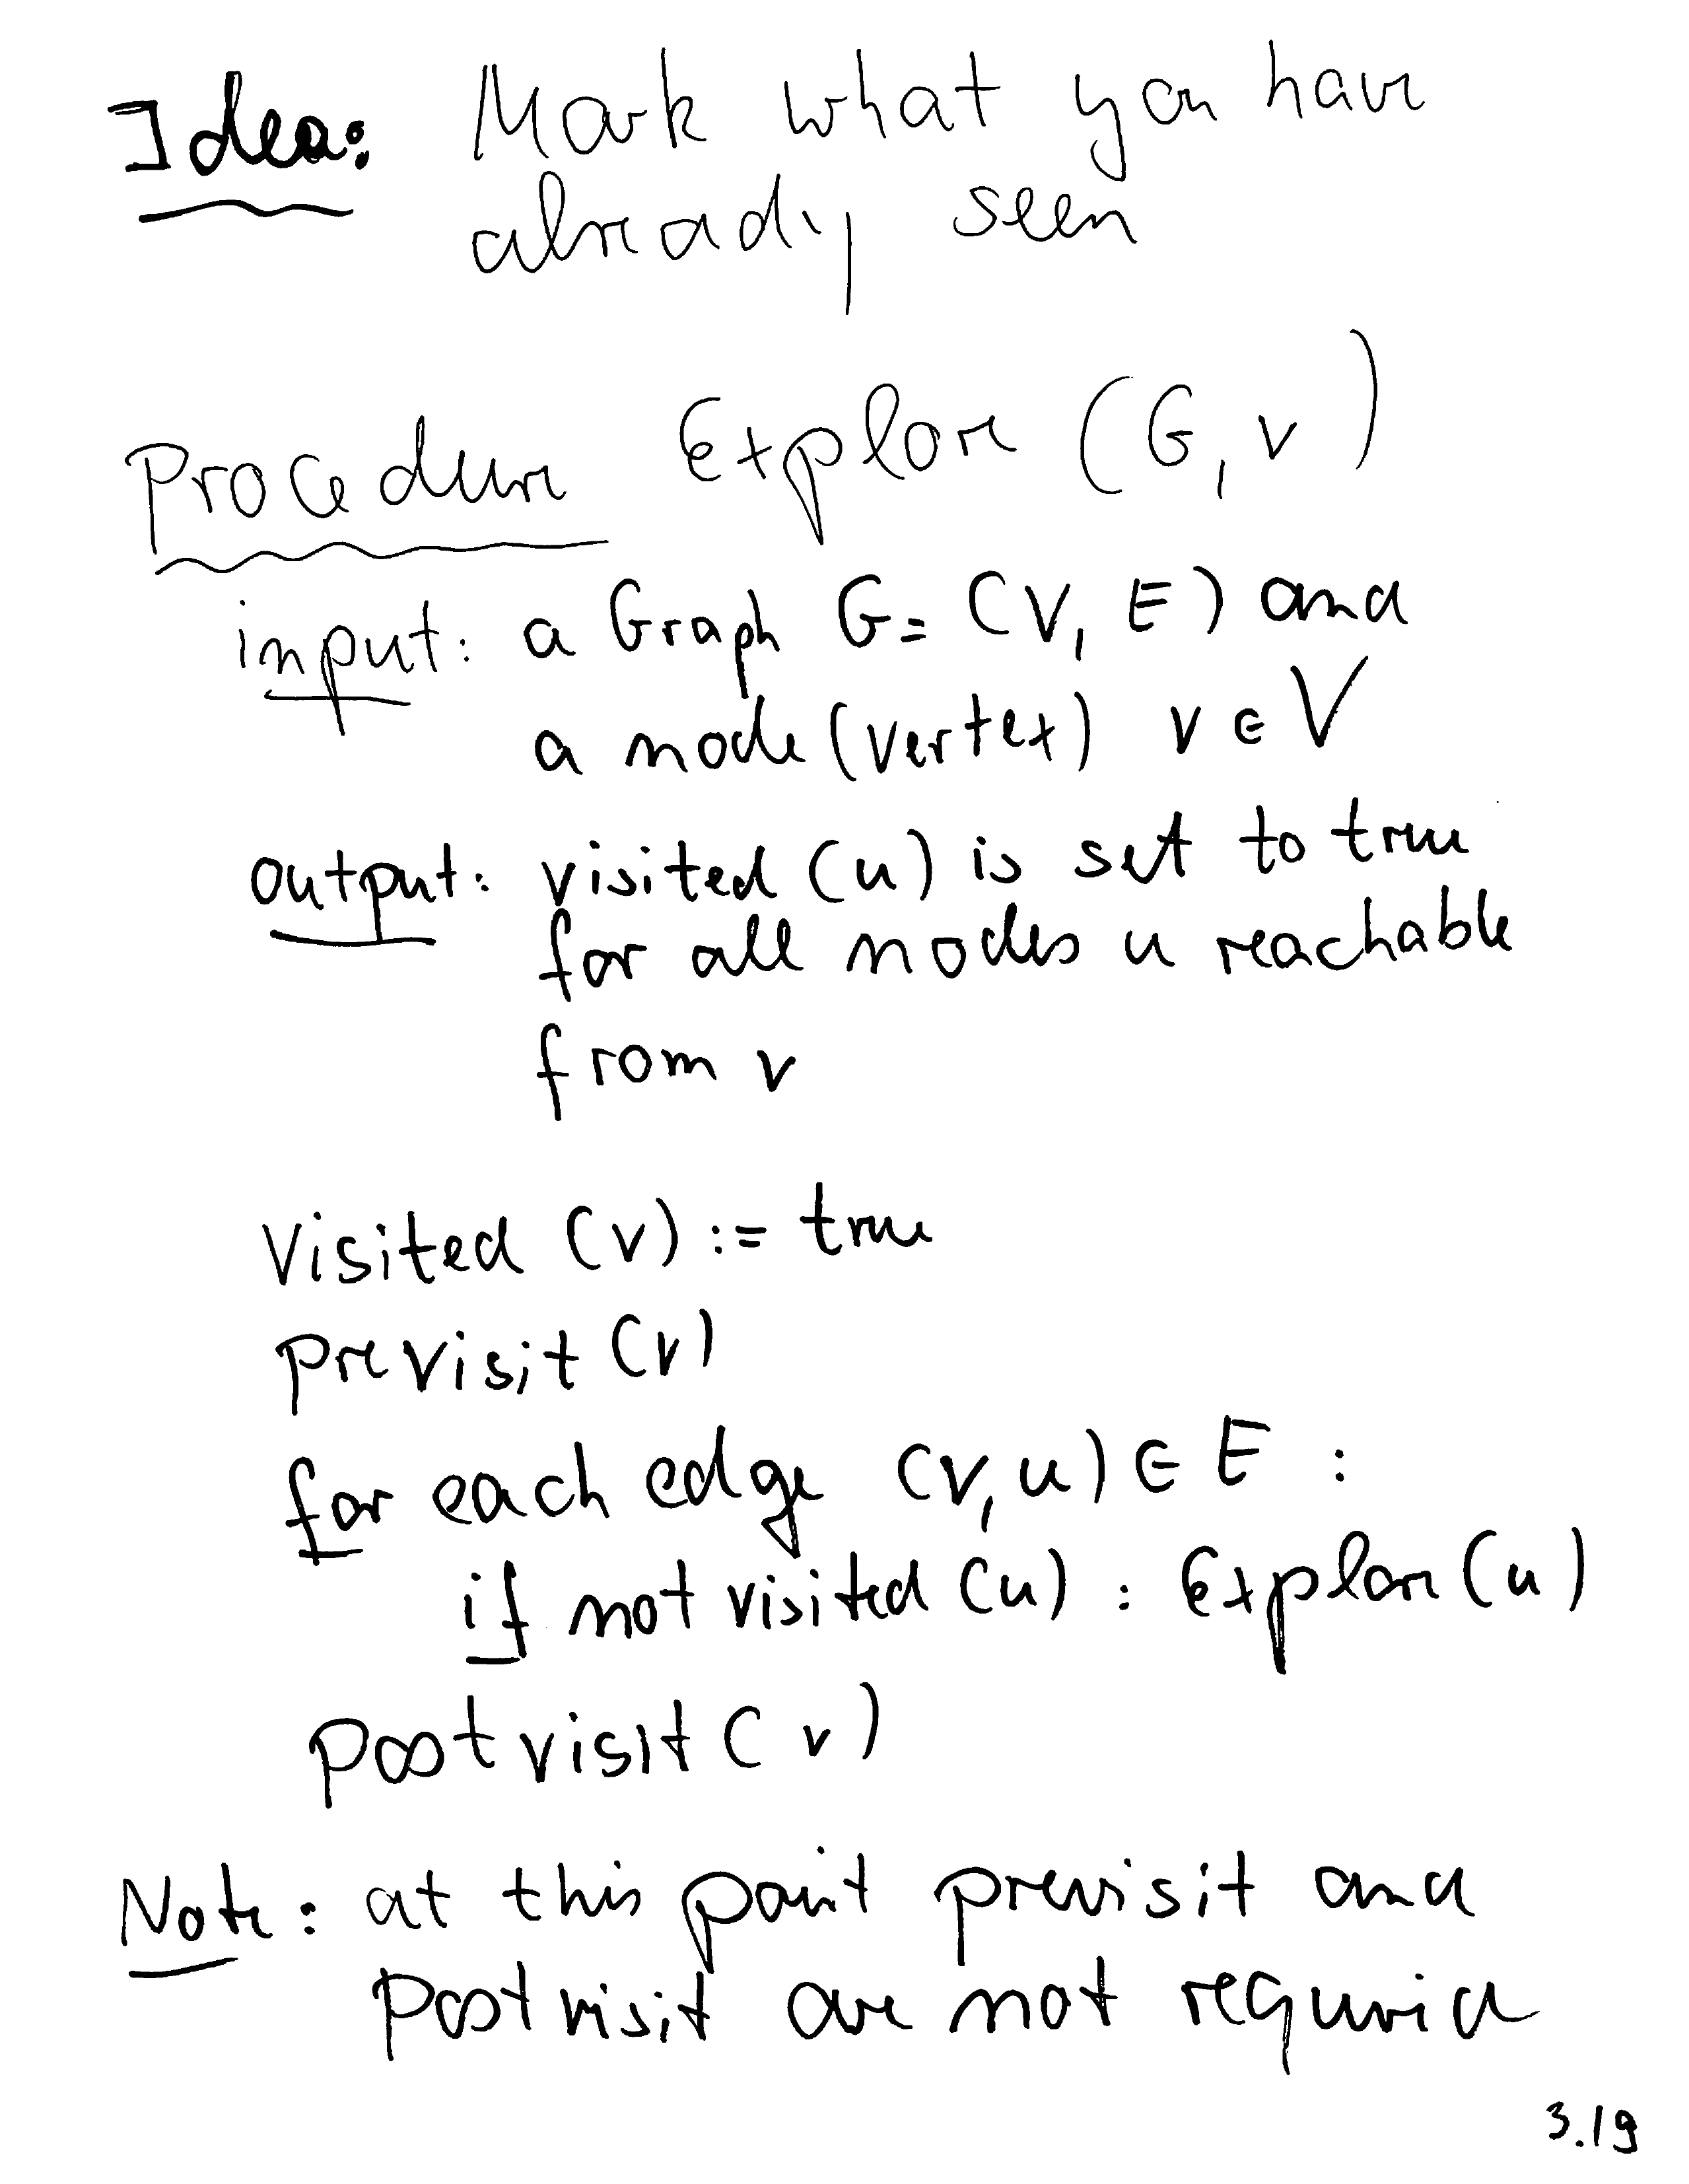 Idea: Mark what you have
already seen
Procedure Explore (G, v)
input: a Graph G = (V, E) and
a node (vertex) v ∈ V
output: visited (u) is set to true
for all nodes u reachable
from v
visited (v) := true
previsit (v)
for each edge (v, u) ∈ E :
if not visited (u) : Explore (u)
postvisit (v)
Note: at this point previsit and
postvisit are not required
3.19